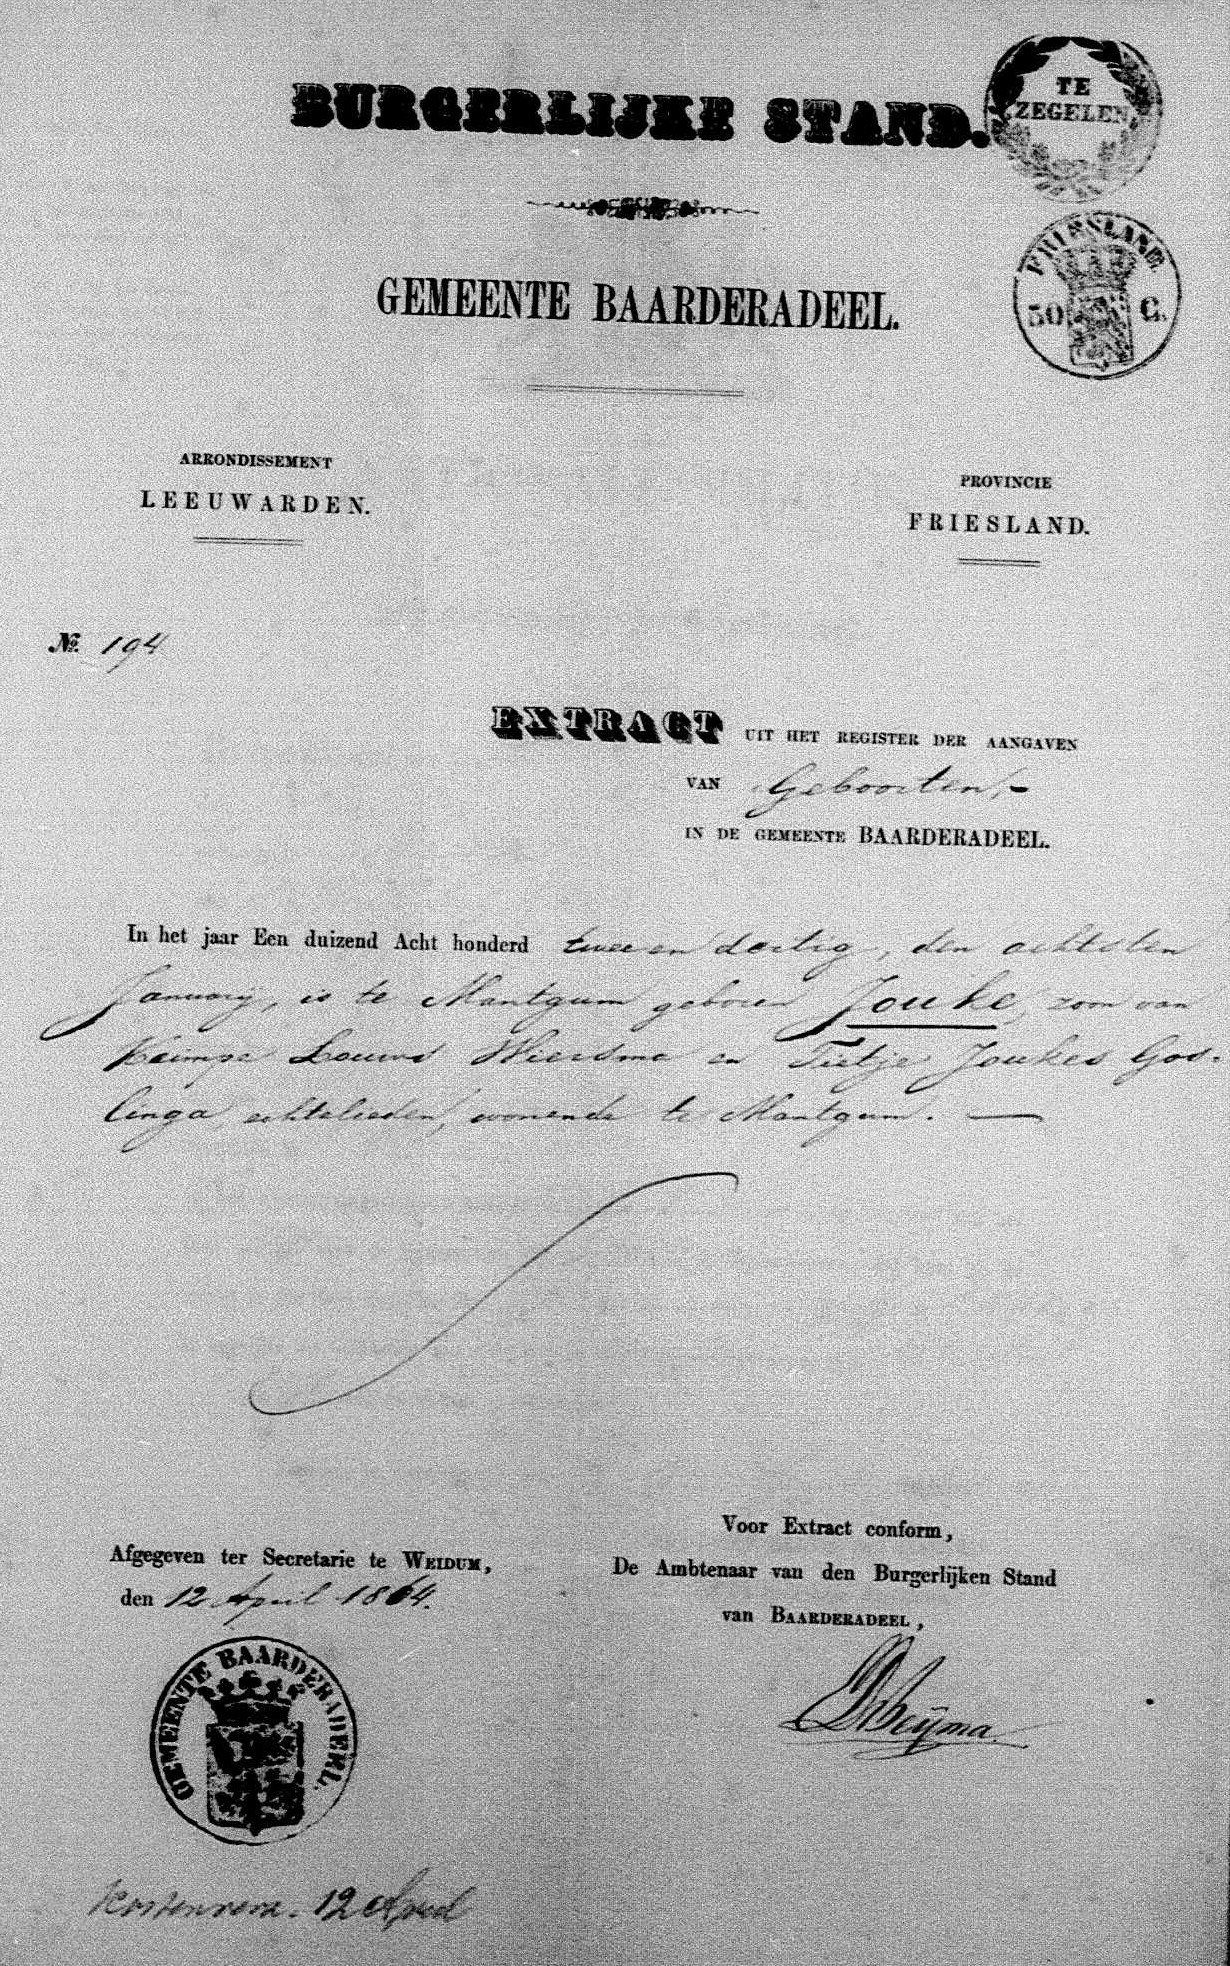 BURGERLIJKE STAND.
TE
ZEGELEN
FRIESLAND.
50 C.
GEMEENTE BAARDERADEEL.
ARRONDISSEMENT
LEEUWARDEN.
PROVINCIE
FRIESLAND.
№. 194
EXTRACT UIT HET REGISTER DER AANGAVEN
VAN Geboorten,
IN DE GEMEENTE BAARDERADEEL.
In het jaar Een duizend Acht honderd twee en dertig, den achtsten
January, is te Mantgum geboren Jouke, zoon van
Keimpe Louws Wiersma en Tietje Joukes Gos-
linga, echtelieden, wonende te Mantgum.
Voor Extract conform,
De Ambtenaar van den Burgerlijken Stand
van BAARDERADEEL,
Afgegeven ter Secretarie te WEIDUM,
den 12 April 1864.
GEMEENTE BAARDERADEEL.
12 April